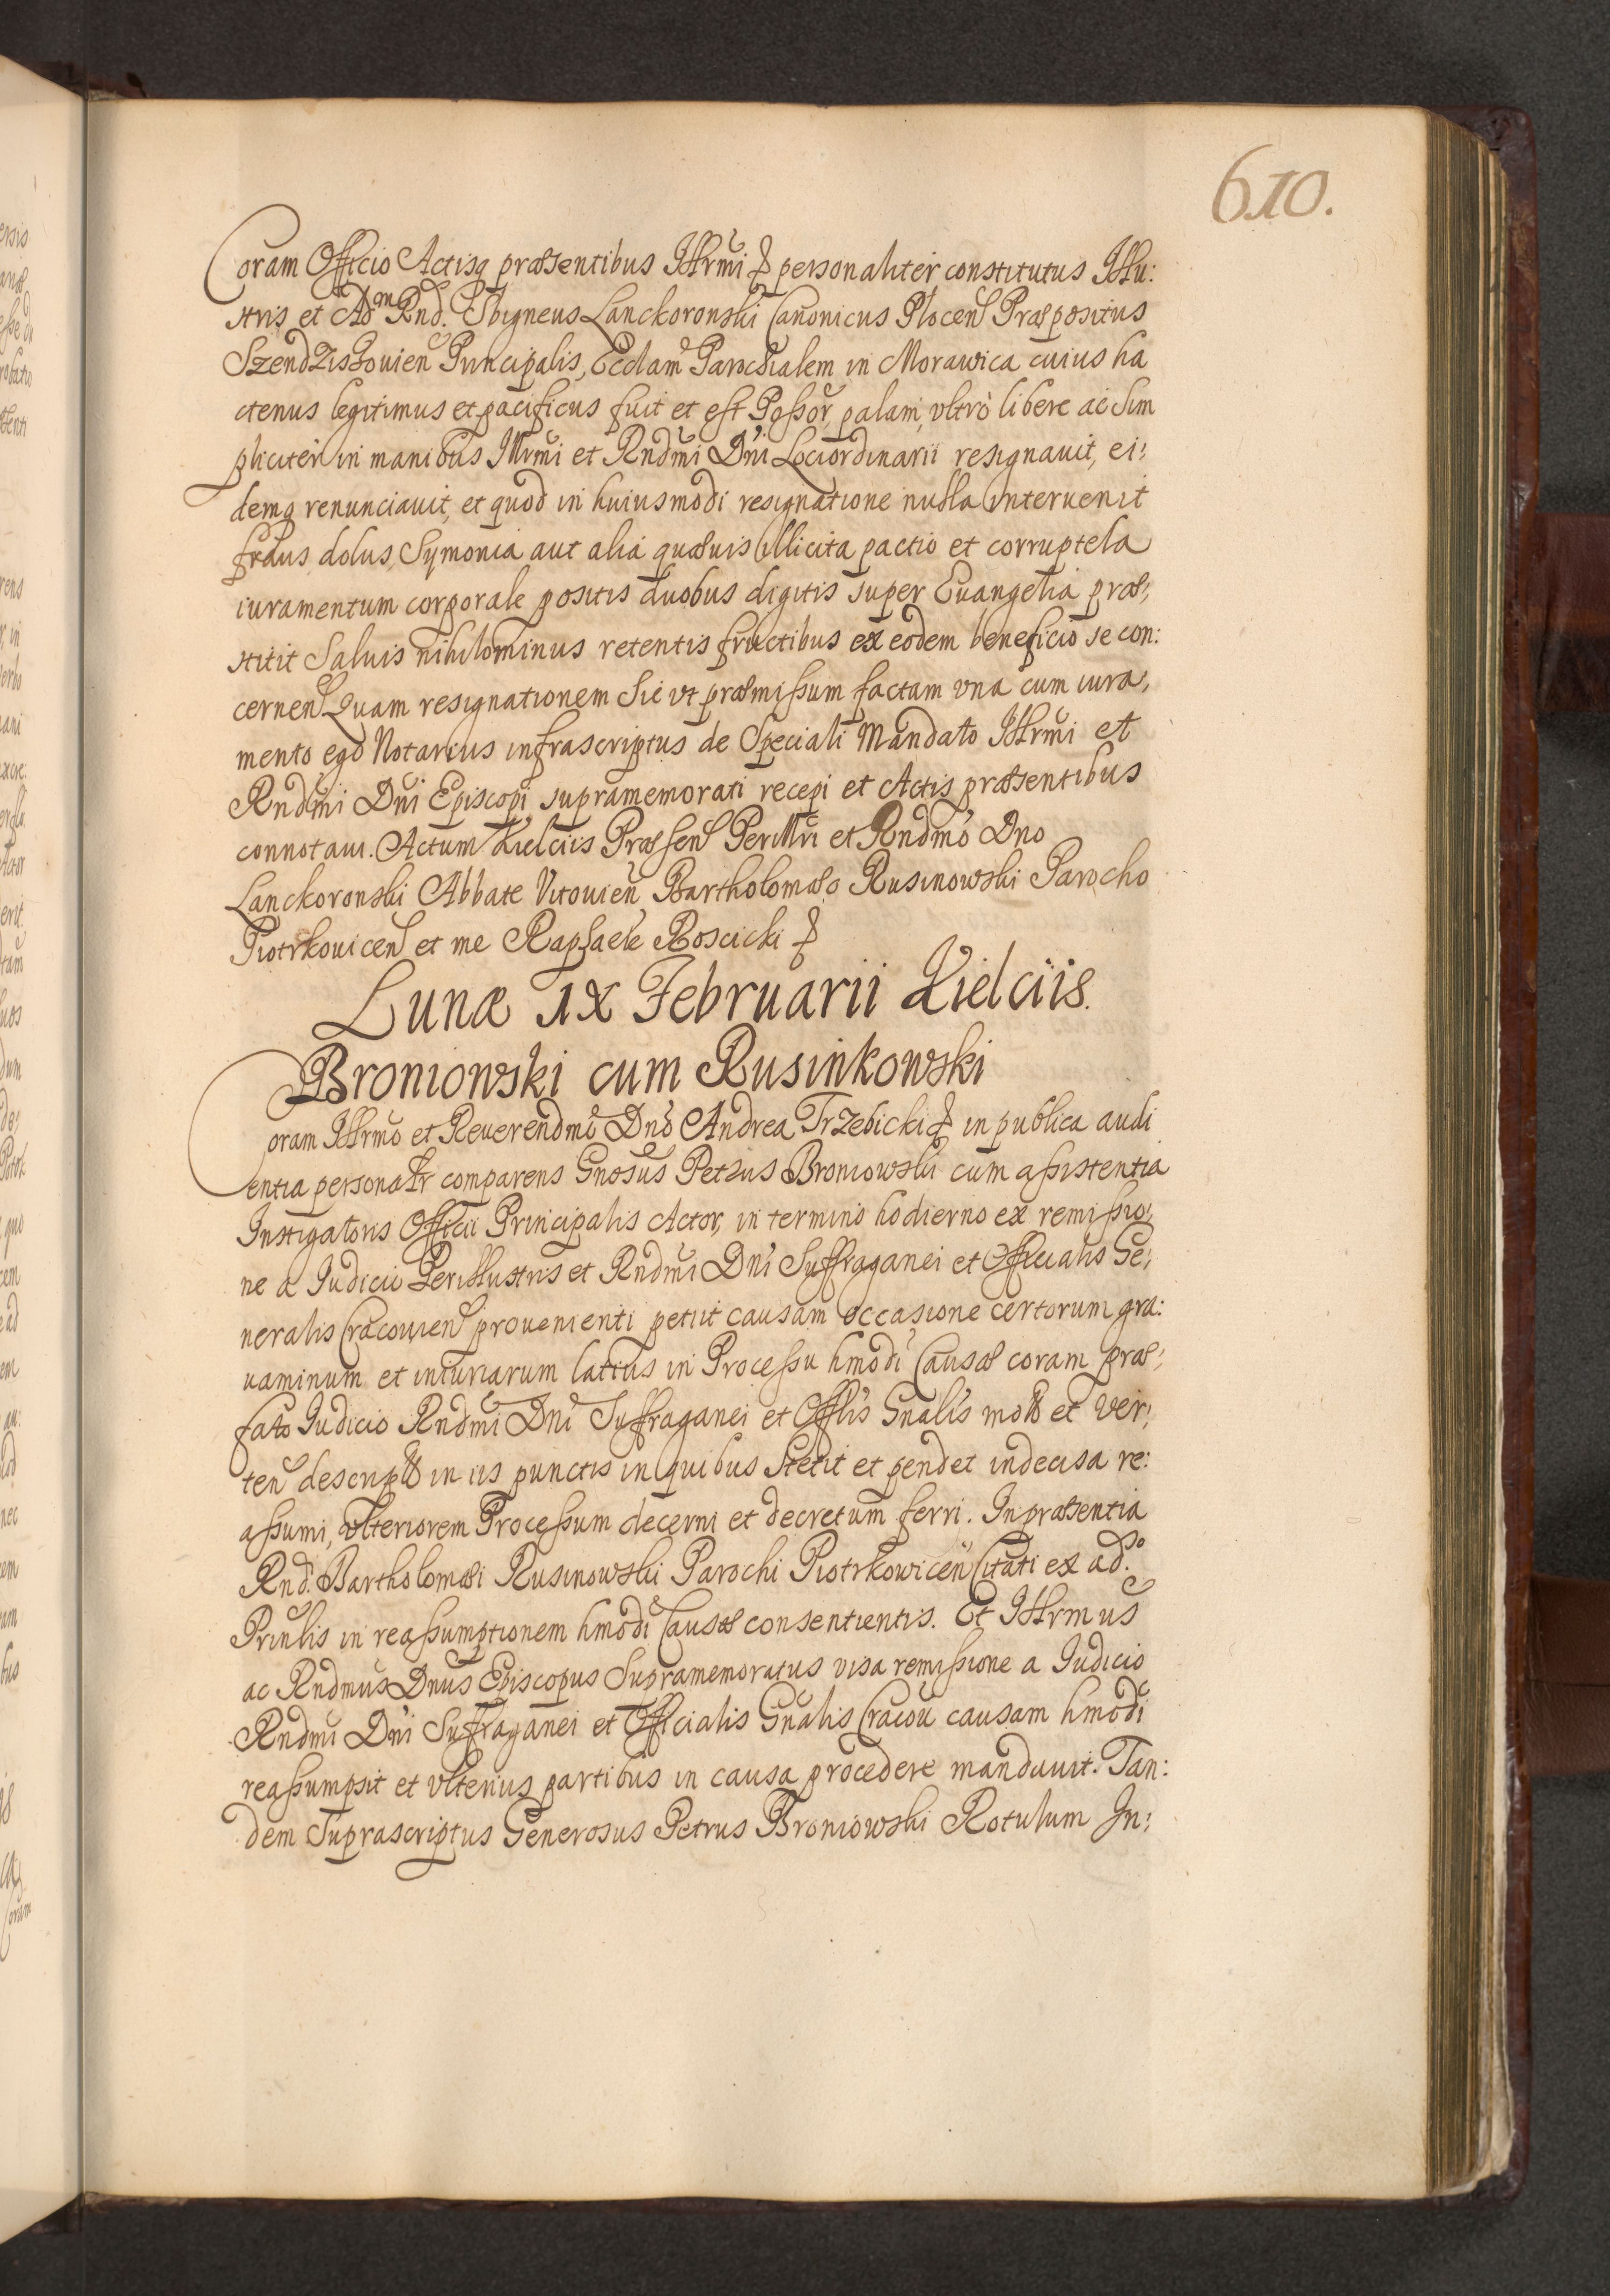 610.
Coram Officio Actisq præsentibus Illrmi & personaliter constitutus Illu:
stris et Adm Rnd. Sbigneus Lanckoronski Canonicus Plocen Præpositus
Szendziszouien Principalis, Ecclam Parochialem in Morawica cuius ha
ctenus legitimus et pacificus fuit et est Possor, palam, vltro libere ac Sim
pliciter in manibus Illrmi et Rndmi Dni Lociordinarii resignauit, ei:
demq renunciauit, et quod in huiusmodi resignatione nulla interuenit
fraus, dolus, Symonia aut alia quæuis illicita pactio et corruptela
iuramentum corporale positis duobus digitis super Euangelia præ,
stitit Saluis nihilominus retentis fructibus ex eodem beneficio se con:
cernen Quam resignationem Sic vt præmissum factam vna cum iura,
mento ego Notarius infrascriptus de Speciali Mandato Illrmi et
Rndmi Dni Episcopi supramemorati recepi et Actis præsentibus
connotaui. Actum Kielciis Præsen Perillri et Rndmo Dno
Lanckoronski Abbate Vitouien Bartholomæo Rusinowski Parocho
Piotrkouicen et me Raphaele Roscicki &
Lunæ IX Februarii Kielciis.
Broniowski cum Rusinkowski
Coram Illrmo et Reuerendmo Dno Andrea Trzebicki & in publica audi
entia personalr comparens Gnosus Petrus Broniowski cum assistentia
Instigatoris Officii Principalis Actor, in termino hodierno ex remissio,
ne a Iudicio Perillustris et Rndmi Dni Suffraganei et Officialis Ge,
neralis Cracouien prouenienti petiit causam occasione certorum gra:
uaminum et iniuriarum latius in Processu hmodi Causæ coram præ,
fato Iudicio Rndmi Dni Suffraganei et Offlis Gnalis mot et ver,
ten descript in iis punctis in quibus Stetit et pendet indecisa re:
assumi, vlteriorem Processum decerni et decretum ferri. In præsentia
Rnd. Bartholomæi Rusinowski Parochi Piotrkowicen Citati ex ado.
Prinlis in reassumptionem hmodi Causæ consentientis. Et Illrmus
ac Rndmus Dnus Episcopus Supramemoratus visa remissione a Iudicio
Rndmi Dni Suffraganei et Officialis Gnalis Cracou causam hmodi
reassumpsit et vlterius partibus in causa procedere mandauit. Tan:
dem Suprascriptus Generosus Petrus Broniowski Rotulum In,